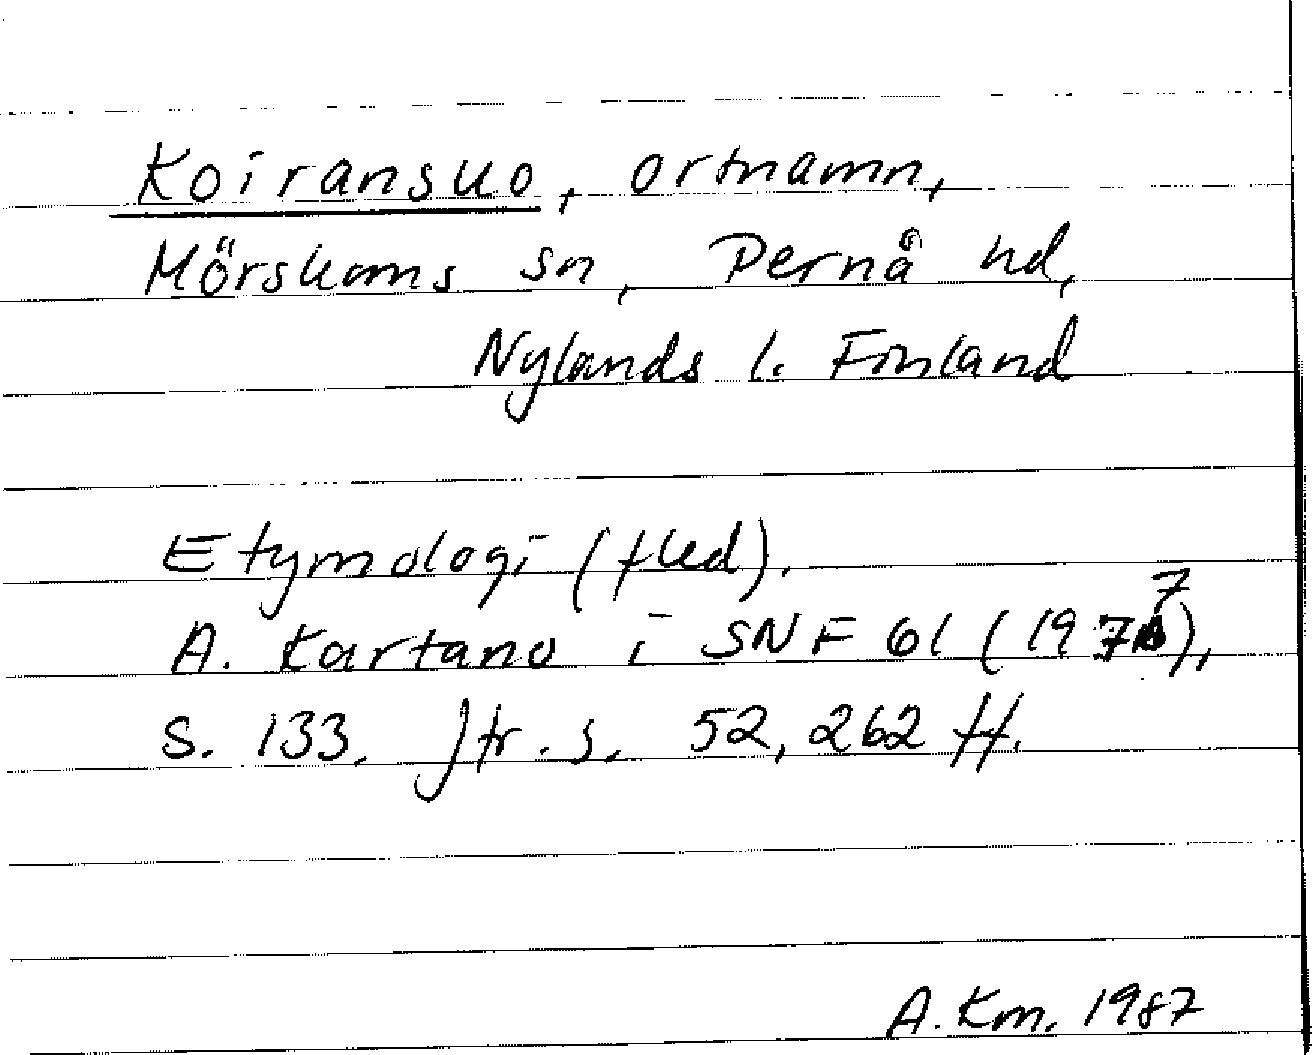 Koiransuo, ortnamn,
Mörskoms sn, Pernå hd,
Nylands l. Finland
Etymologi (fled).
A. Kartano i SNF 61 (1977),
s. 133. Jfr. s. 52, 262 ff.
A. Km. 1987